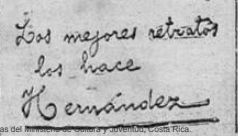 Los mejores retratos
los hace
Hernández
as del Ministerio de Cultura y Juventud, Costa Rica.